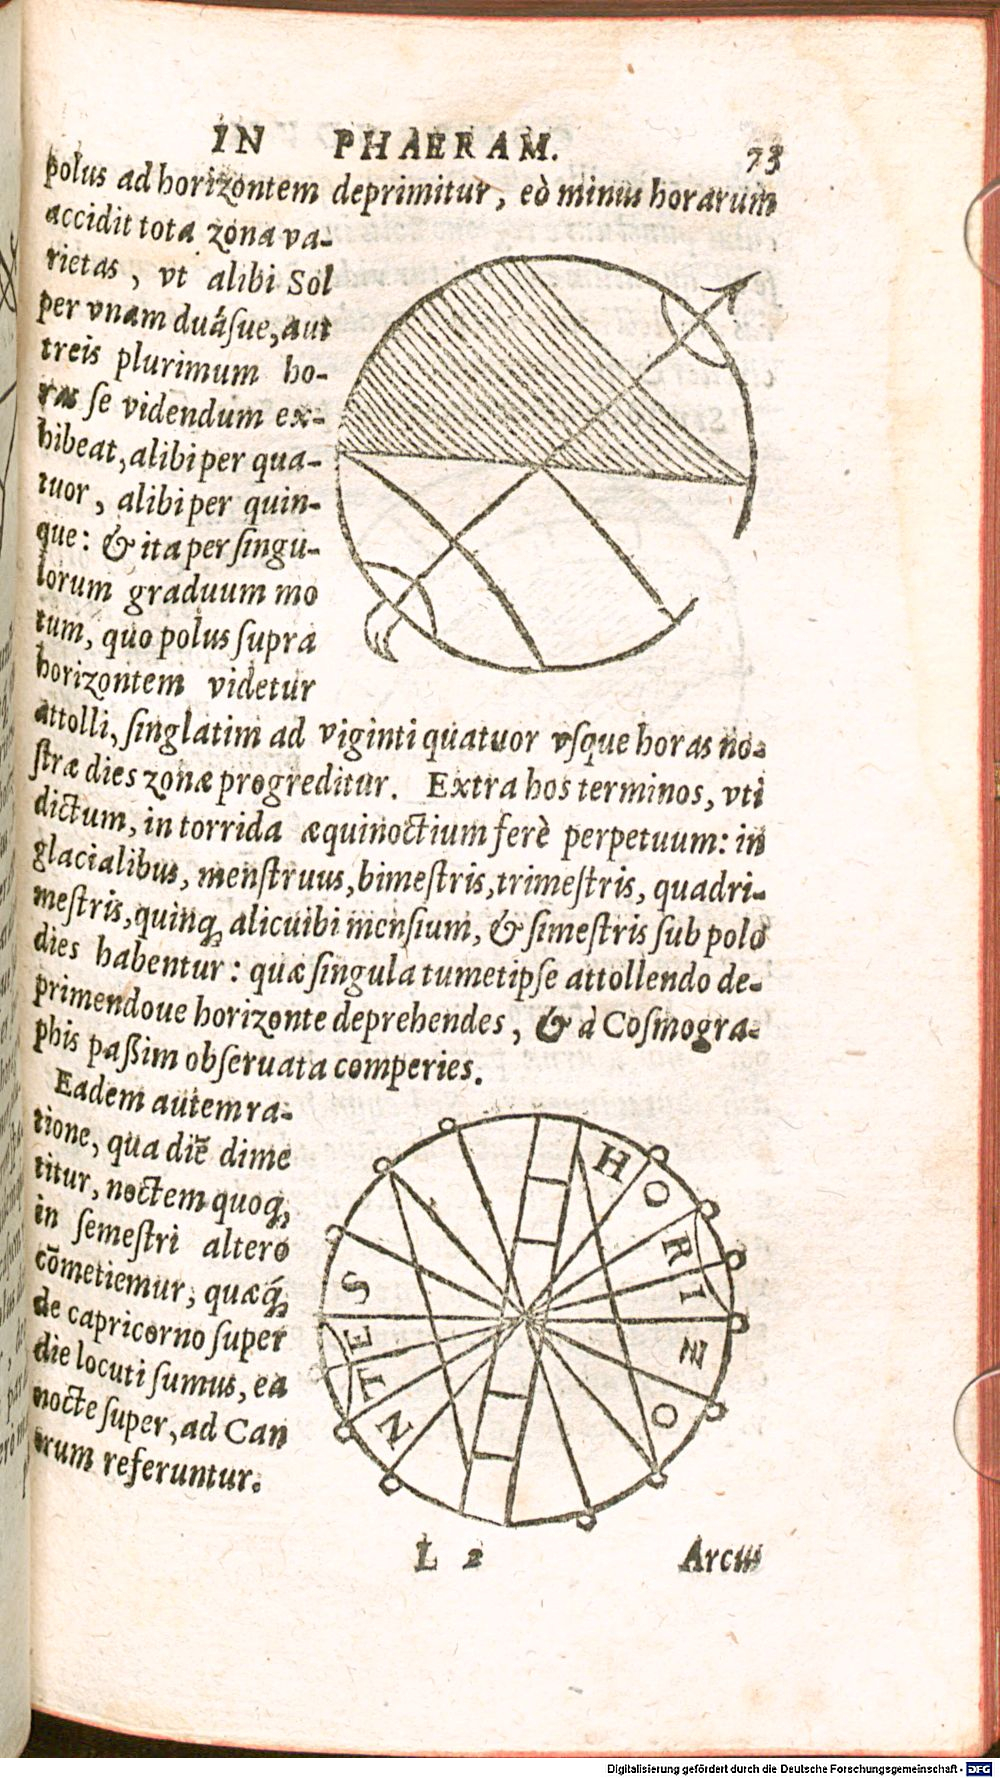 IN PHAERAM. 73
polus ad horizontem deprimitur, eò minus horarum
accidit tota zona va-
rietas, vt alibi Sol
per vnam duásue, aut
treis plurimum ho-
ras se videndum ex-
hibeat, alibi per qua-
tuor, alibi per quin-
que: & ita per singu-
lorum graduum mo
tum, quo polus supra
horizontem videtur
attolli, singlatim ad viginti quatuor vsque horas no-
stræ dies zonæ progreditur. Extra hos terminos, vti
dictum, in torrida æquinoctium ferè perpetuum: in
glacialibus, menstruus, bimestris, trimestris, quadri-
mestris, quinq; alicuibi mensium, & simestris sub polo
dies habentur: quæ singula tumetipse attollendo de-
primendoue horizonte deprehendes, & à Cosmogra-
phis paßim obseruata comperies.
Eadem autem ra-
tione, qua diē dime
titur, noctem quoq;
in semestri altero
cōmetiemur; quæq́;
de capricorno super
die locuti sumus, ea
nocte super, ad Can
crum referuntur.
HORIZO
NTES
L 2 Arcus
Digitalisierung gefördert durch die Deutsche Forschungsgemeinschaft - DFG